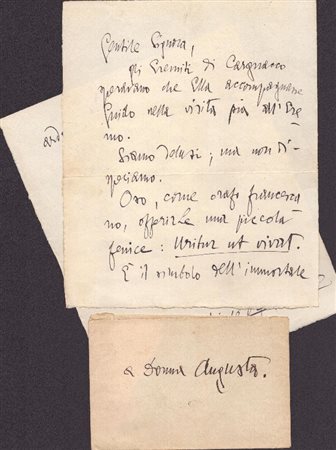 Gentile Signora,
gli Eremiti di Cargnacco
speravano che Ella accompagnasse
Guido nella visita pia all'Ere-
mo.
Siamo delusi; ma non di-
speriamo.
Oso, come orafo francesca-
no, offrirle una piccola
fenice: Uritur ut vivat.
È il simbolo dell'immortale
a Donna Augusta.